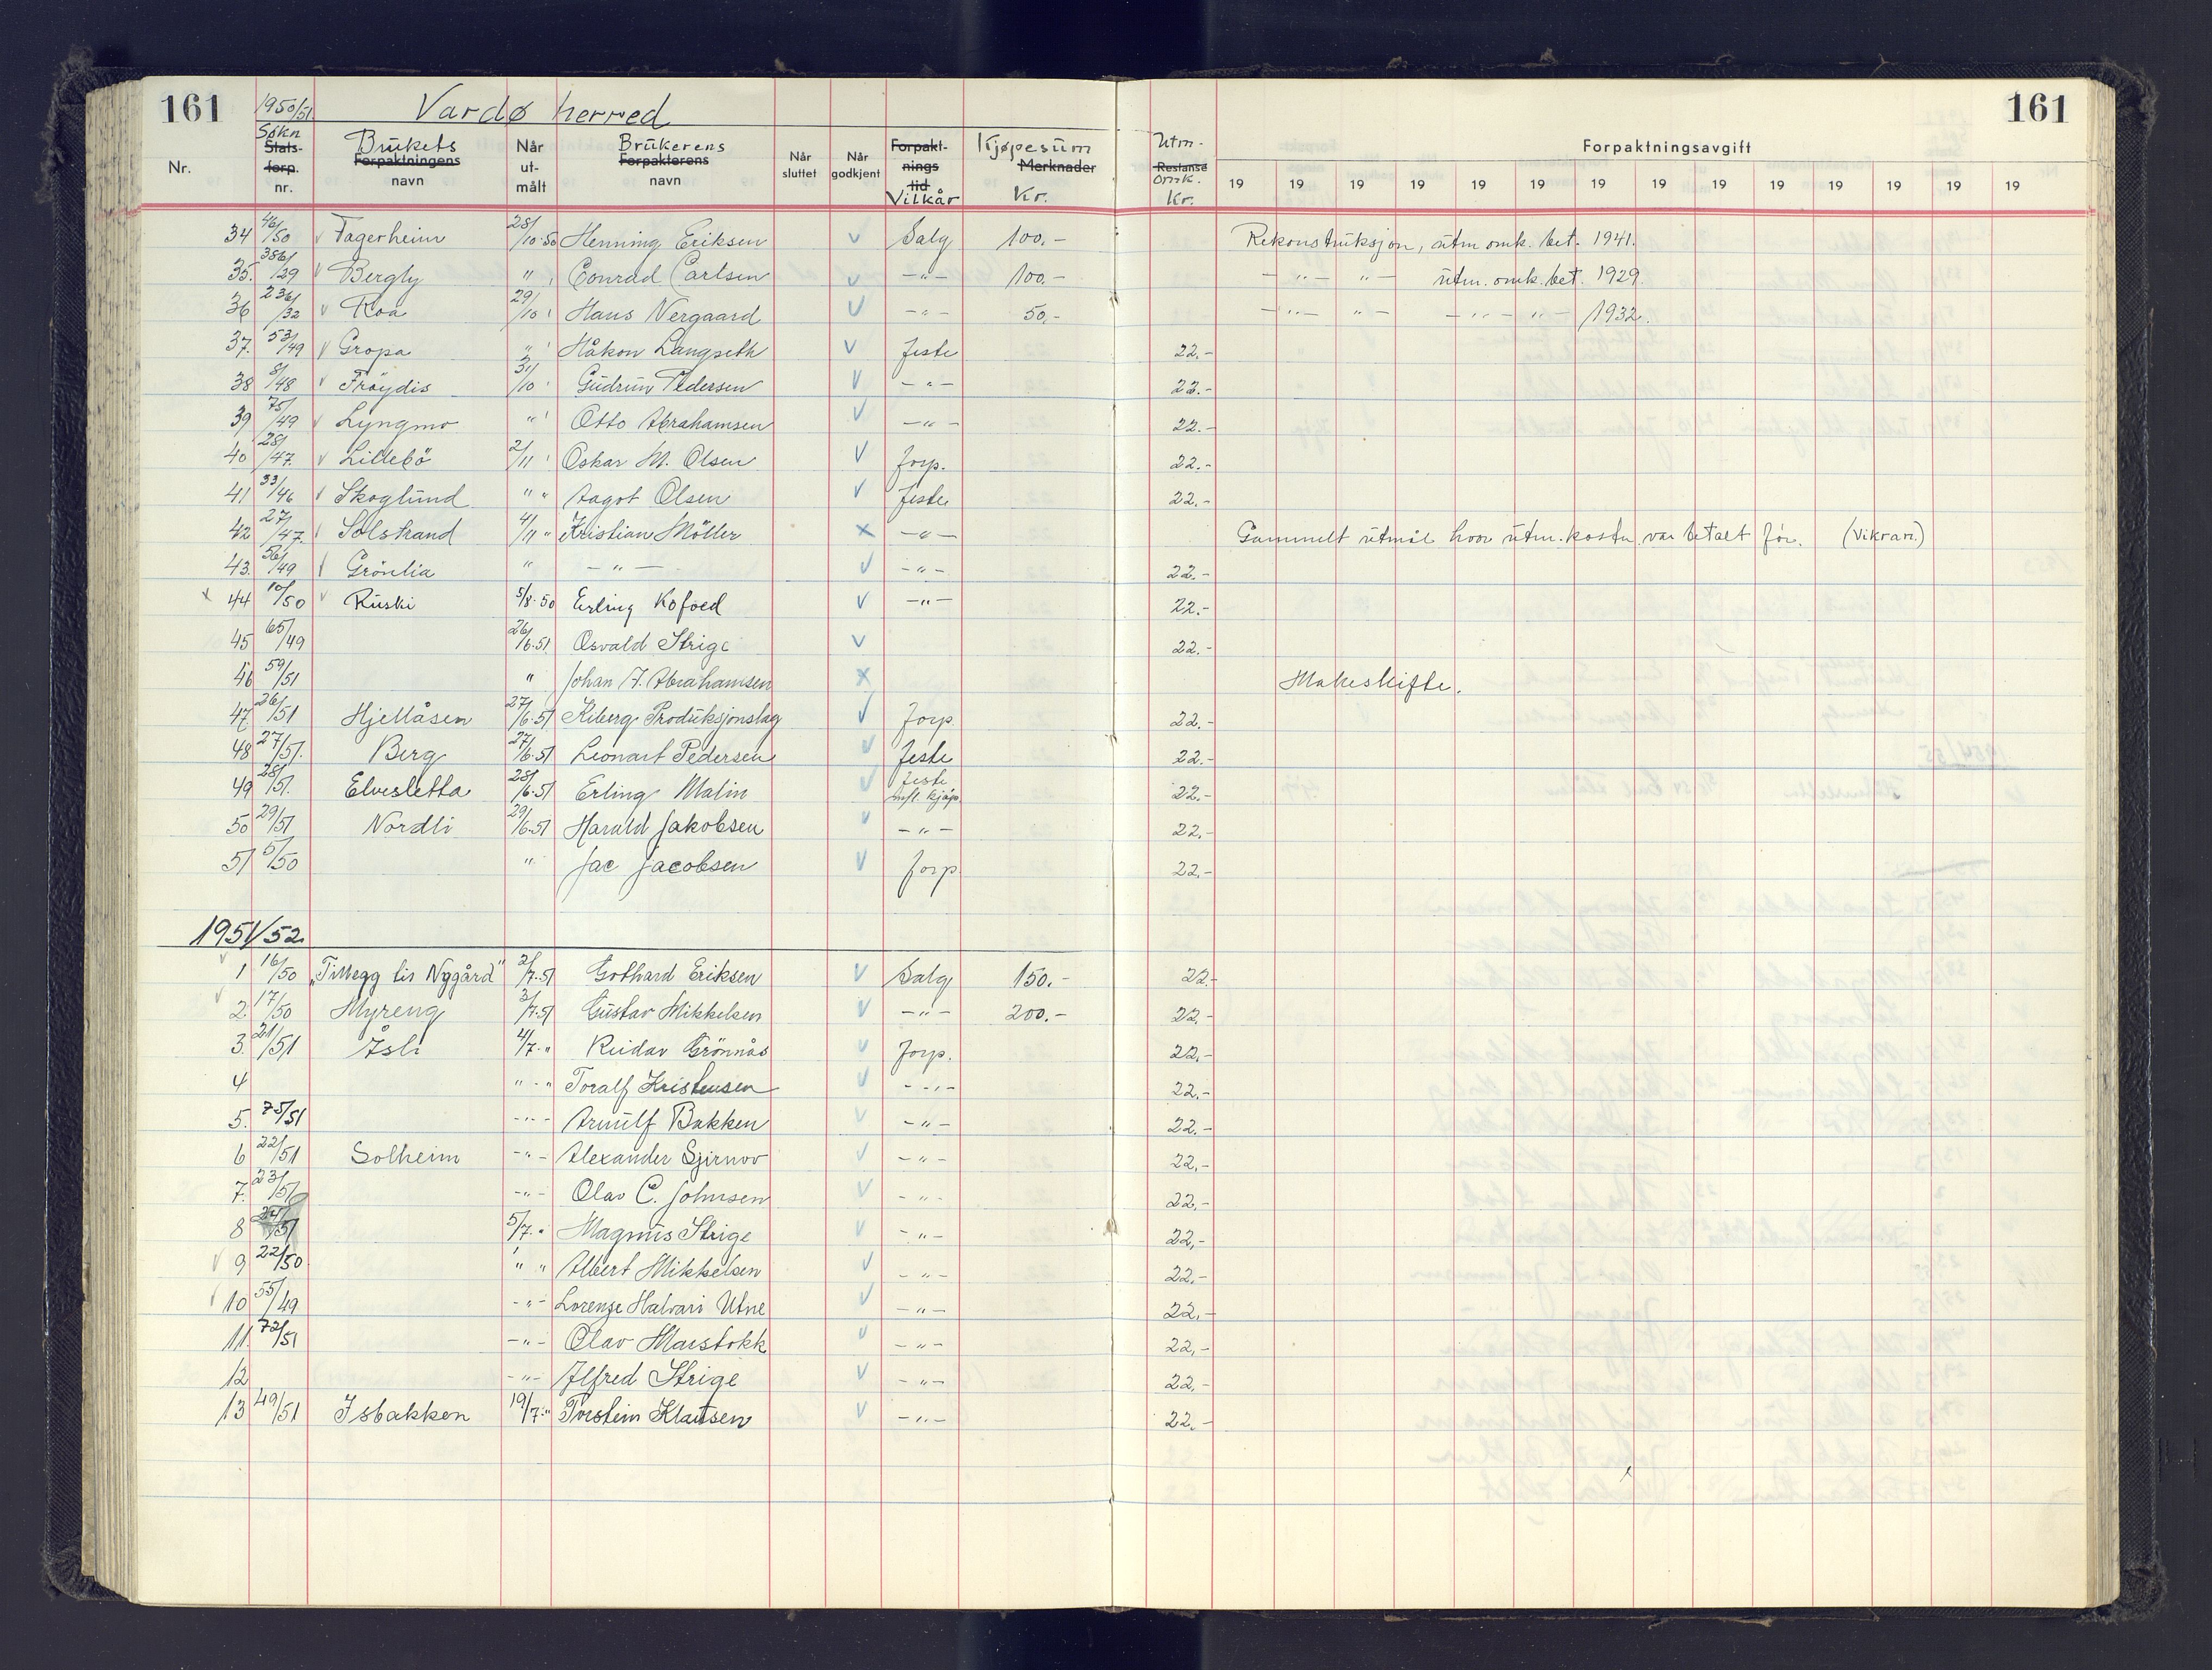 161 1950/51 Vardø herred 161
Nr. Søkn Stats-forp. nr. Brukets Forpaktningens navn Når ut-målt Brukerens Forpakterens navn Når sluttet Når godkjent Forpakt-nings tid Vilkår Kjøpesum Merknader Kr. Utm- Restanse omk. Kr. Forpaktningsavgift
19 19 19 19 19 19 19 19 19 19 19 19 19 19
34 46/50 v Fagerheim 28/10-50 Henning Eriksen v Salg 100.- Rekonstruksjon, utm omk. bet. 1941.
35. 386/29 v Bergly " Conrad Carlsen v -"- 100.- -"- -"- utm. omk. bet. 1929.
36 236/32 v Roa 29/10 Hans Nergaard v -"- 50.- -"- "- -"- "- 1932.
37. 53/49 v Gropa " Håkon Langseth v feste 22.-
38 8/48 v Fröydis 31/10 Gudrun Pedersen v -"- 22.-
39 75/49 v Lyngmo " Otto Abrahamsen v -"- 22.-
40 28/47. v Lillebö 2/11 Oskar M. Olsen v forp. 22.-
41 33/46 v Skoglund " " Aagot Olsen v feste 22.-
42 27/47. v Solstrand 4/11 " Kristian Möller x -"- Gammelt utmål hvor utm. kostn. var betalt før. (Vikran.)
43. 56/49 v Grönlia " -"- v -"- 22.-
x 44 10/50 v Ruski 5/8-50 Erling Kofoed v -"- 22.-
45 65/49 26/6-51 Osvald Strige v 22.-
46 59/51 " Johan F. Abrahamsen x Makeskifte.
47 26/51 Hjellåsen 27/6-51 Kiberg Produksjonslag v forp. 22.-
48 27/51. Berg 27/6-51 Leonart Pedersen v feste 22.-
49 28/51. Elvesletta 28/6-51 Erling Malin v feste kjøp 22.-
50 29/51 Nordli 29/6-51 Harald Jakobsen v -"- 22.-
51 5/50 " Jac Jacobsen v forp 22.-
1951/52
v 1 16/50 "Tillegg til Nygård" 2/7-51 Gothard Eriksen v Salg 150.- 22.-
v 2. 17/50 Myreng 3/7-51 Gustav Mikkelsen v -"- 200.- 22.-
3. 21/51 Åsli 4/7-" Reidar Grönnås v Forp. 22.-
4 " - " Toralf Kristensen v -"- 22.-
5. 75/51 -"- Arnulf Bakken v -"- 22.-
6 22/51 Solheim -"- Alexander Sjirnov v -"- 22.-
7. 23/51 -"- Olav C. Johnsen v -"- 22.-
8 24/51 5/7-" Magnus Strige v -"- 22.-
v 9 22/50 " " Albert Mikkelsen v -"- 22.-
v 10 55/49 -"- Lorenze Halvari Utne v -"- 22.-
11. 72/51 -"- Olav Marstokk v -"- 22.-
12 -"- Alfred Strige v -"- 22.-
13 49/51 Isbakken 19/7-" Torstein Klausen v -"- 22.-